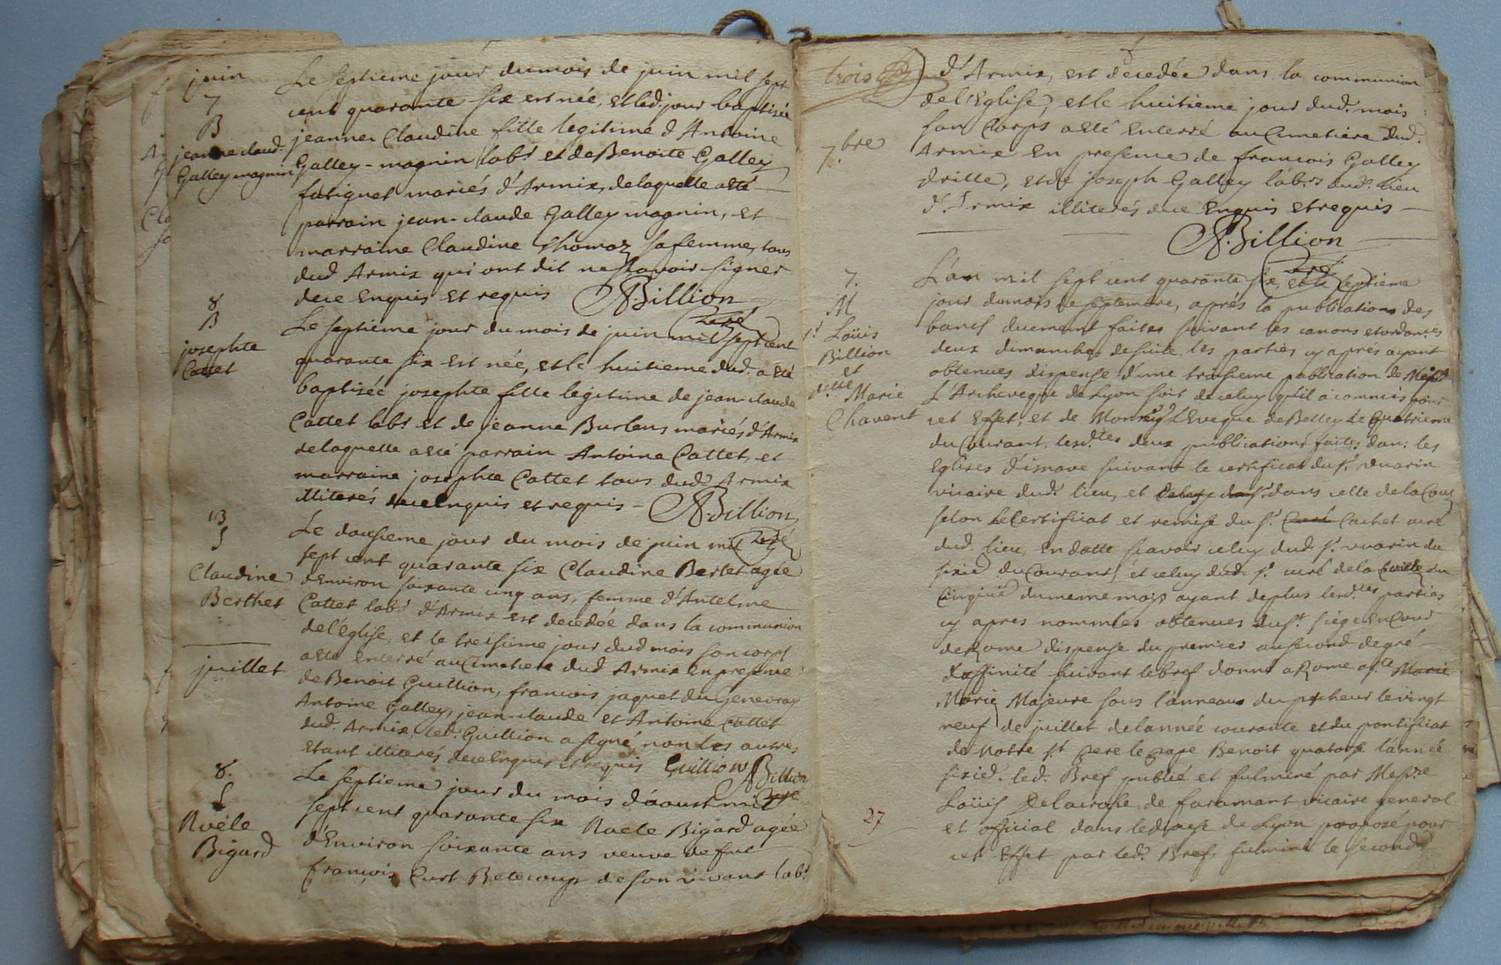 juin
7
B
jeanne claud.
Galley magnin
Le septieme jour du mois de juin mil sept
cent quarante six est née, et led. jour baptisée
jeanne Claudine fille legitime d'Antoine
Galley-magnin labr. et de Benoite Galley
fatiguet mariés d'Armix, de laquelle a été
parrain jean-claude Galley magnin, et
marraine Claudine Thomaz sa femme, tous
dud. Armix qui ont dit ne sçavoir signer
de ce enquis et requis NBillion
8
B
josephte
Cattet
Le septieme jour du mois de juin mil sept cent
quarante six est née, et le huitieme dud. a été
baptisée josephte fille legitime de jean-claude
Cattet labr. et de jeanne Burlens mariés d'Armix
de laquelle a été parrain Antoine Cattet, et
marraine josephte Cattet tous dud. Armix
illiterés de ce enquis et requis - NBillion
S
Claudine
Berthet
Le dousieme jour du mois de juin mil
sept cent quarante six Claudine Berlet agée
d'Environ soixante cinq ans, femme d'Antelme
Cattet labr. d'Armix est decedée dans la communion
de l'église, et le treisieme jour dud. mois son corps
a été enterré au Cimetiere dud. Armix en presence
juillet
de Benoit Guillion, francois jaquet du genevray
Antoine Galley, jean-claude et Antoine Cattet
dud. Armix led. Guillion a signé non les autres
etant illiterés de ce enquis et requis Guillion NBillion
8.
S
Ruele
Bigard
Le septieme jour du mois d'aoust mil
sept cent quarante six Ruele Bigard agée
d'Environ soixante ans veuve de fut
françois Curt Betecoup de son vivant labr.
trois
d'Armix, est decedée dans la communion
de l'Eglise, et le huitieme jour dud. mois
son Corps a été enterré au Cimetiere dud.
7.bre
Armix En presence de francois Galley
drille, et de joseph Galley labrs. dud. lieu
d'Armix illiterés de ce enquis et requis
N.Billion
7.
M
Sr. Loüis
Billion
et
dlle Marie
Chavent
L'an mil sept cent quarante six, et le septieme
jour du mois de septembre, après la publications des
bancs duement faites suivant les canons et ordonces
deux dimanches de suite, les parties cy après ayant
obtenues dispense d'une troisieme publication de Msgr.
L'Archeveque de Lyon soit de celuy qu'il a commis pour
cet Effet, et de Monsgr. L'Eveque de Belley le quatrieme
du Courant, lesd.tes deux publications faites dans les
Eglises d'isnave suivant le certificat du sr. vuarin
vicaire dud. lieu, et dans celle de la Couz
selon le Certificat et remise du sr. Cachet curé
dud. lieu, en datte sçavoir celuy dud. sr. vuarin du
sixie. du Courant, et celuy dud. sr. curé de la
cinquie. du meme mois ayant de plus lesd.tes parties
cy apres nommées obtenues du St. siège en cour
de Rome dispense du premier au second degré
d'affinité suivant le bref donné a Rome a Ste. Marie
Marie Majeure sous l'anneau du pecheur le vingt
neuf de juillet de l'année courante et du pontificat
de notre St. Pere le Pape Benoit quatorze l'année
sixie. led. Bref publié et fulminé par Messre
Loüis Delacroix de faramant vicaire general
27
et official dans le diocese de Lyon proposé pour
cet Effet par led. Bref, fulminé le second